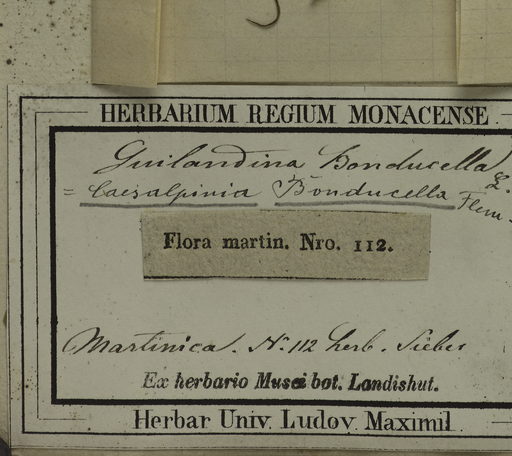 HERBARIUM REGIUM MONACENSE
Guilandina Bonducella L.
= Caesalpinia Bonducella Flem.
Flora martin. Nro. 112.
Martinica. No. 112 herb. Sieber
Ex herbario Musei bot. Landishut.
Herbar Univ. Ludov. Maximil